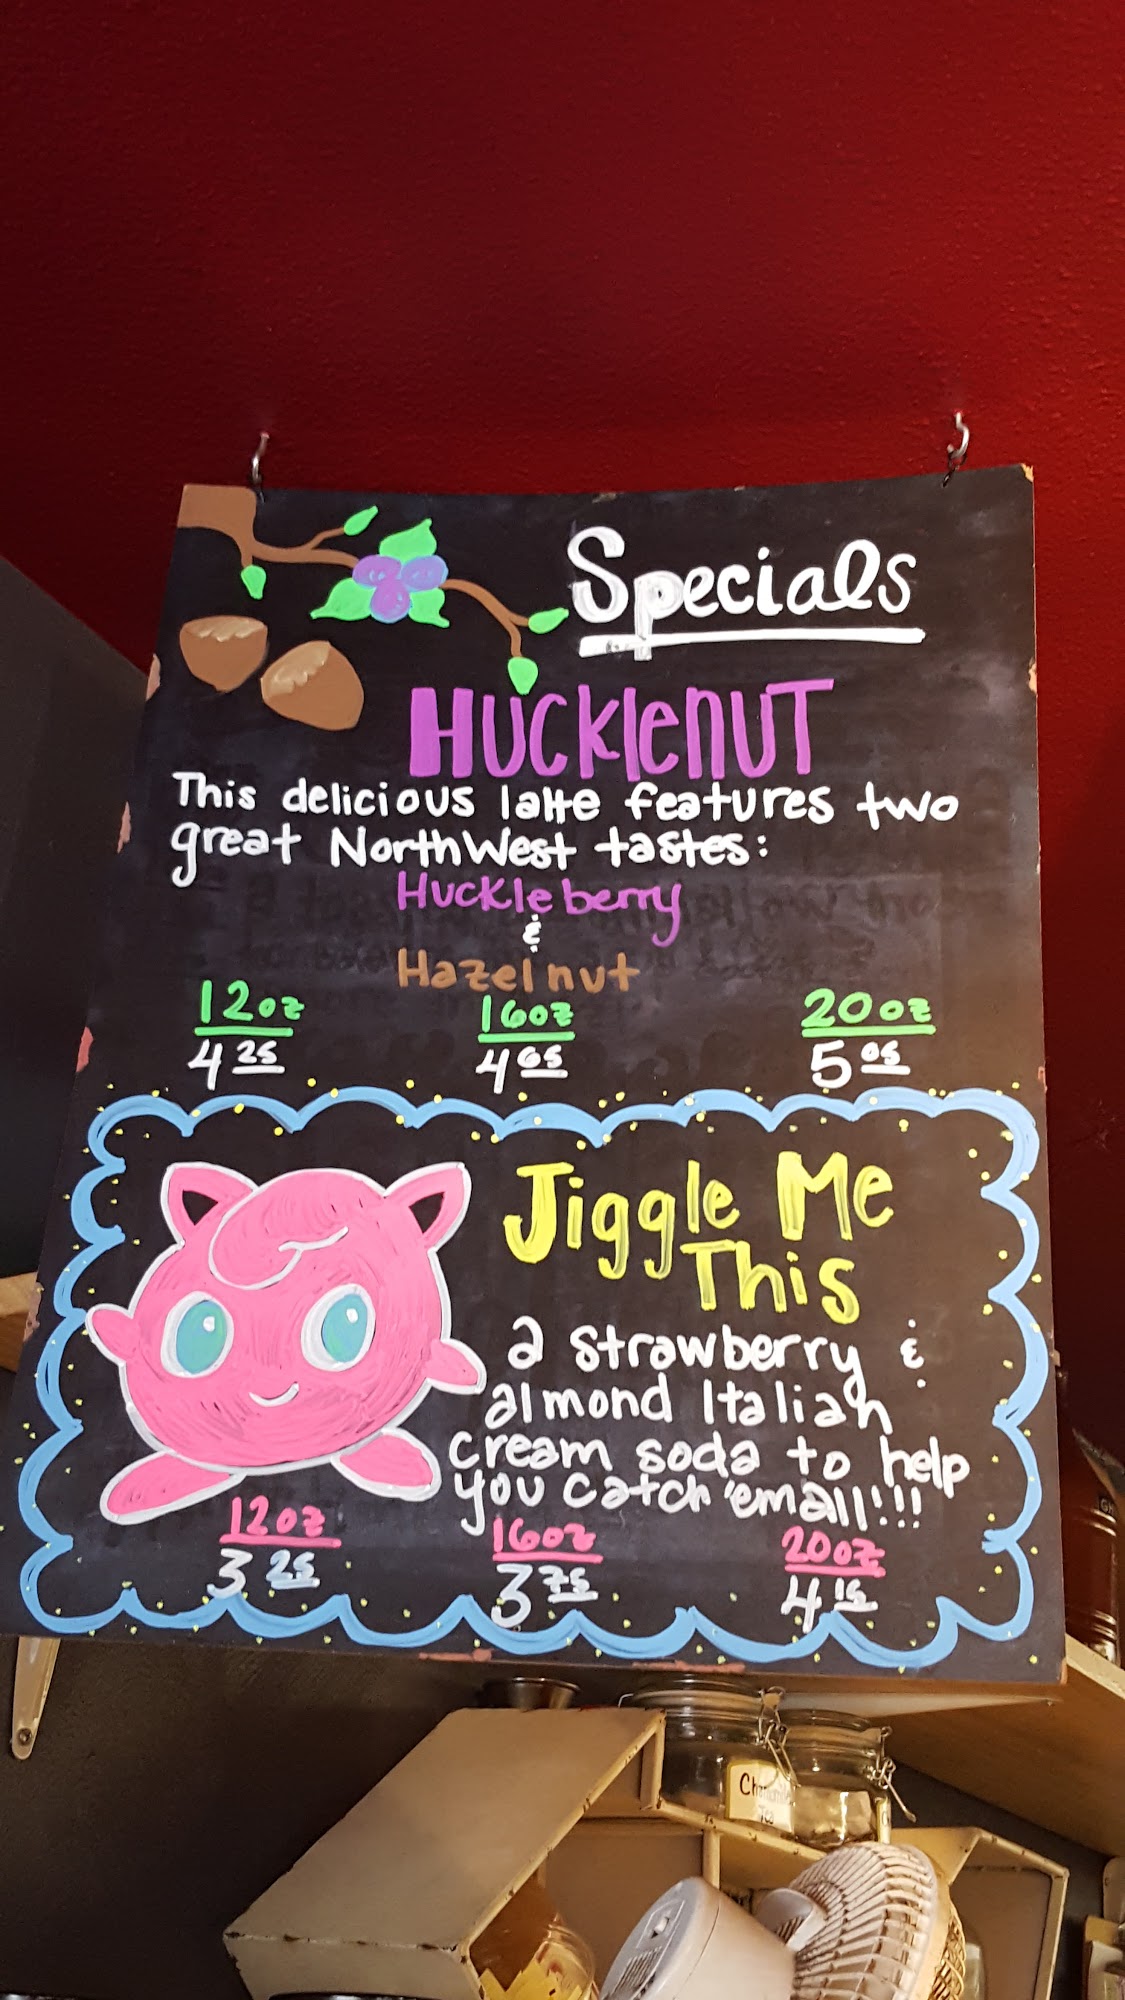 Specials
HUCKleNUT
This delicious latte features two
great NorthWest tastes:
Huckleberry
&
Hazelnut
12oz 16oz 20oz
4 25 4 65 5 05
Jiggle Me
This
a strawberry &
almond Italian
cream soda to help
you catch 'em all!!!
12oz 16oz 20oz
3 25 3 75 4 15
Chamomile
Tea